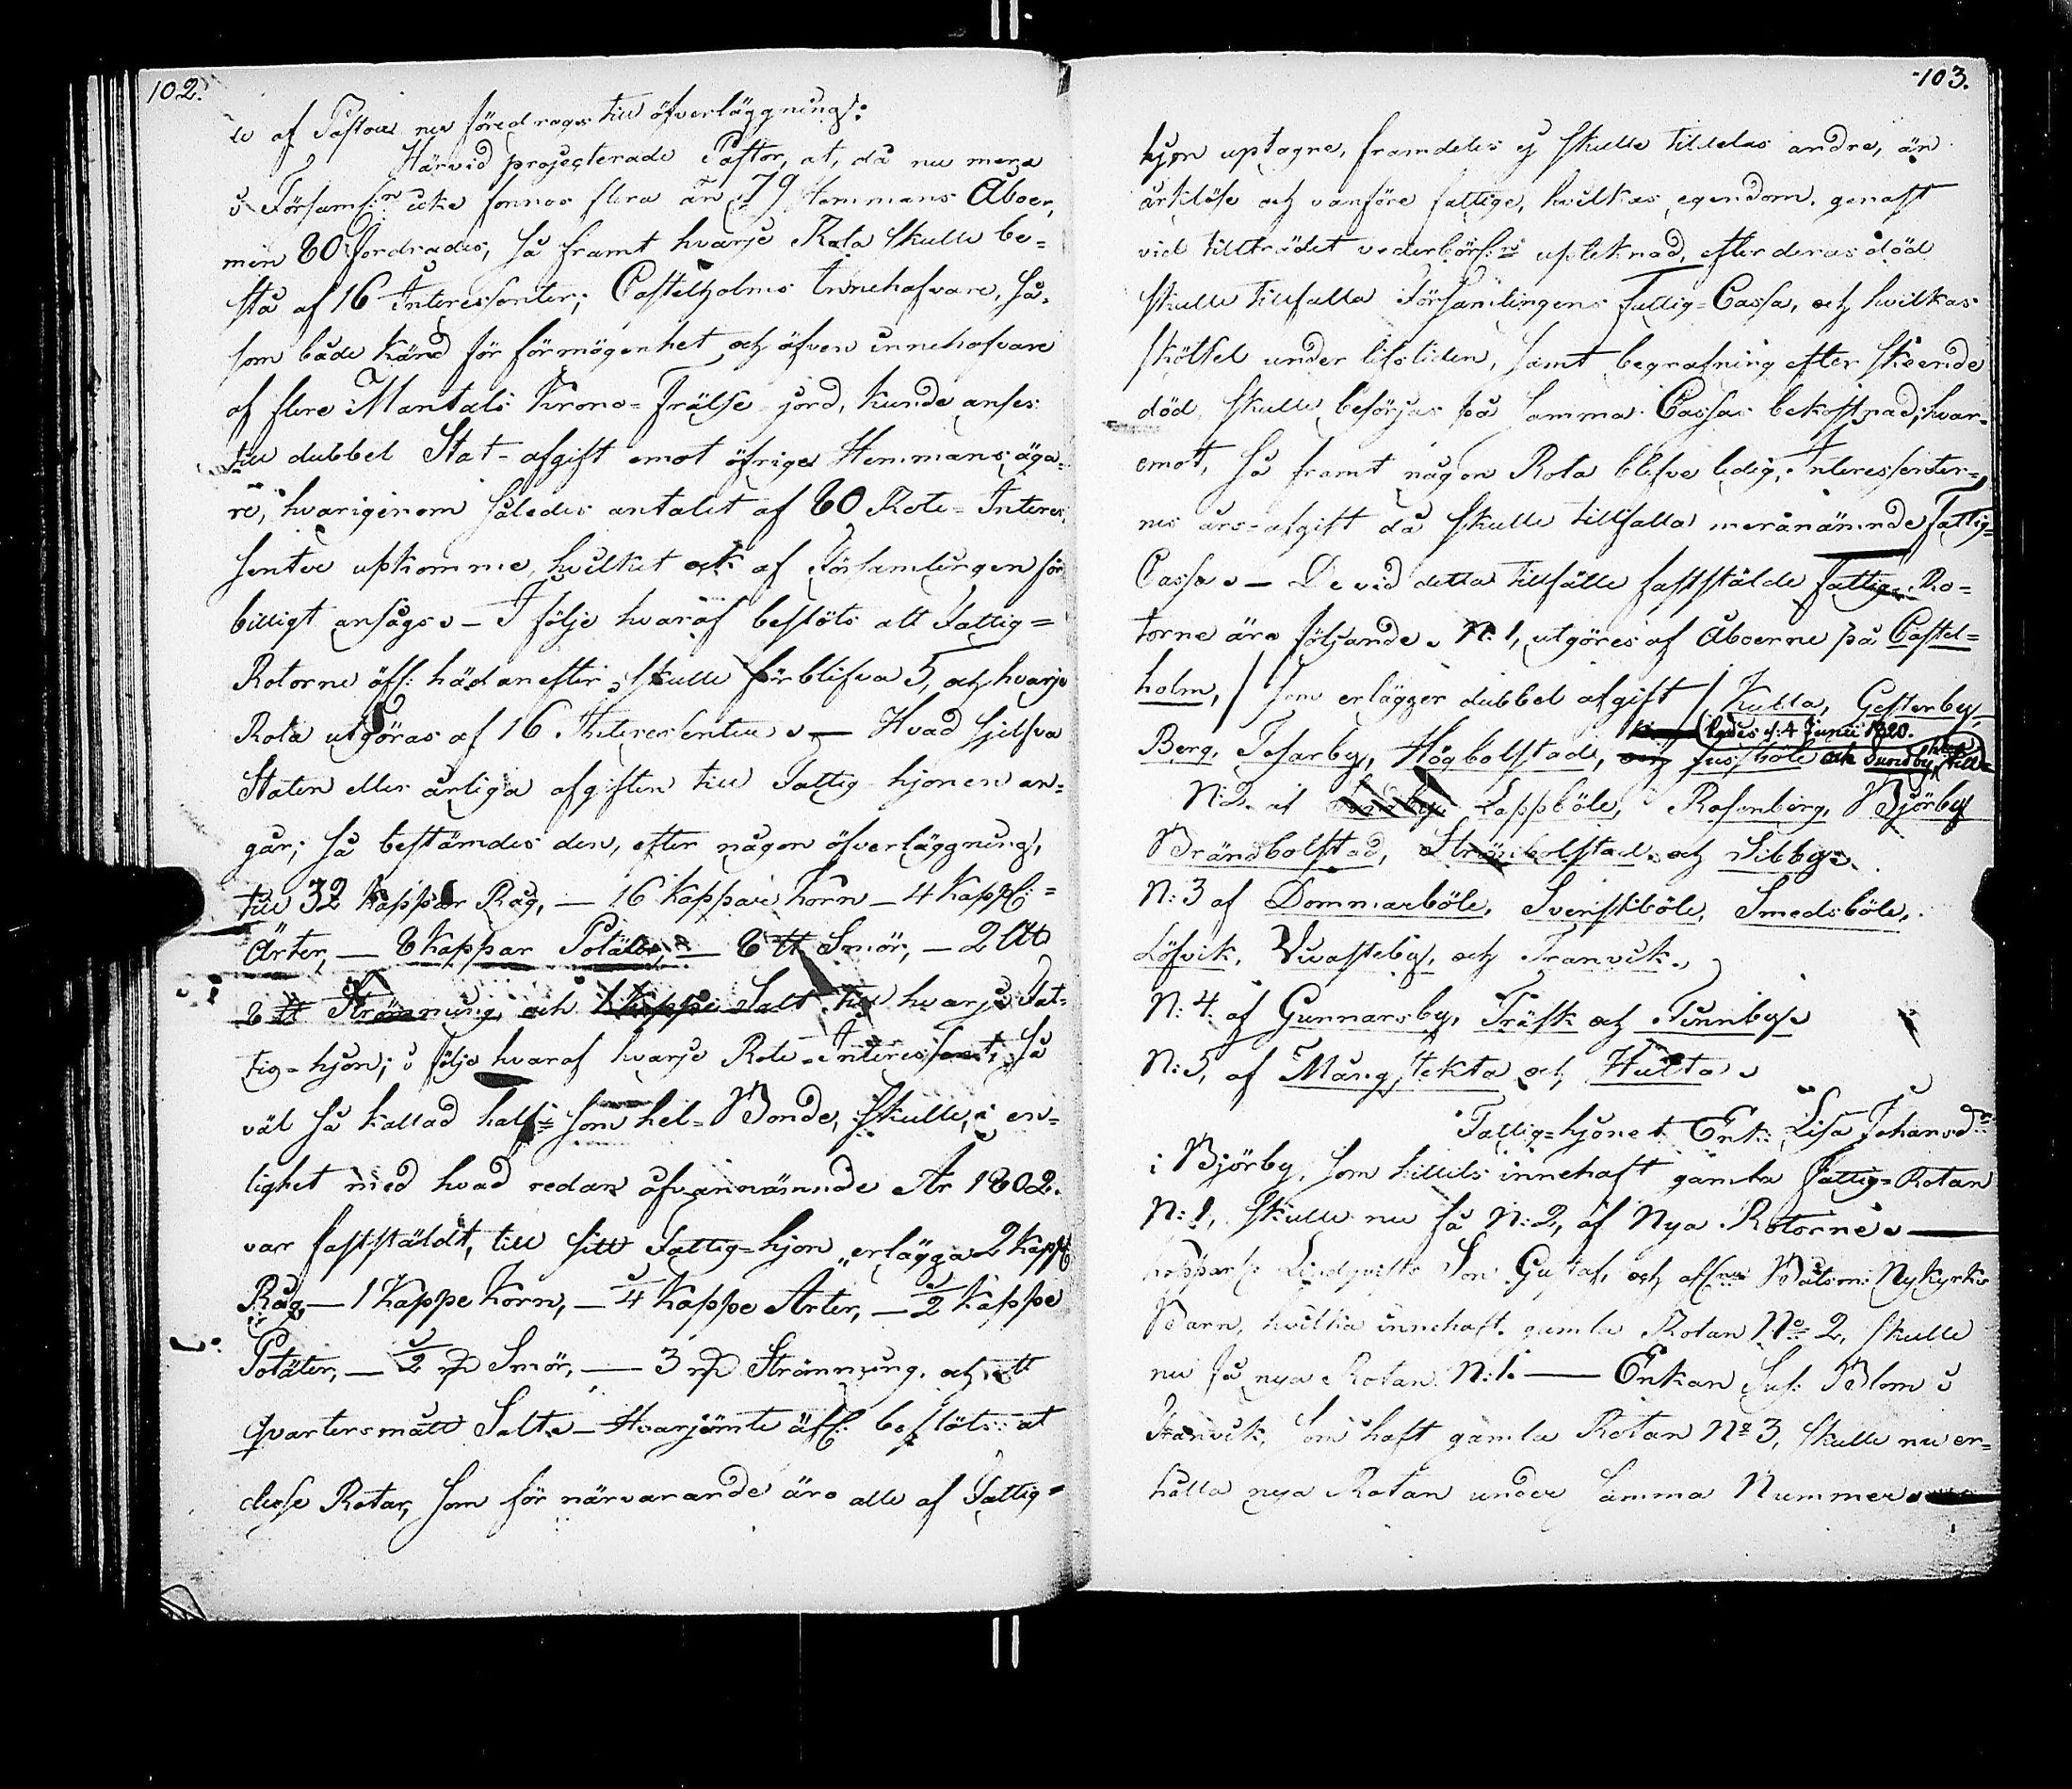 102.
de af Pastor nu föredrages till öfverläggning:
Härvid projecterade Pastor, at, då nu mera
i Församl:n icke finnas flera än 79 Hemmans Åboer,
men 80 fordrades, så framt hvarje Rota skulle be=
stå af 16 Interessenter; Castelholms Innehafvare, så=
som både känd för förmögenhet och äfven innehafvare
af flere Mantals Krono=Frälse=jord, kunde anses
till dubbel Stat=afgift emot öfriga Hemmans äga=
re, hvarigenom således antalet af 80 Rote=Interes=
senter upkomme, hvilket ock af Församlingen för
billigt ansågs. — I följe hvaraf beslöts att Fattig=
Rotorne äfv: hädanefter skulle förblifva 5, och hvarje
Rota utgöras af 16 Interessenter. — Hvad sjelfva
Staten eller årliga afgiften till Fattig=hjonen an=
går; så bestämdes den, efter någon öfverläggning,
till 32 Kappar Råg, — 16 Kappar Korn — 4 Kapp:=
Ärter, — 8 Kappar Potäter, — 8 ℔ Smör, — 2 L℔
8 ℔ Strömming, och 1 Kappe Salt till hvarje Fat=
tig=hjon; i följe hvaraf hvarje Rote=Interessent, så
väl så kallad half= som hel=Bonde, skulle, i en=
lighet med hvad redan ofvannämnde År 1802.
var faststäldt, till sitt Fattig=hjon erlägga 2 Kapp:
Råg, — 1 Kappe Korn, — 1/4 Kappe Ärter, — 1/2 Kappe
Potäter, — 1/2 ℔ Smör, — 3 ℔ Strömming, och ett
qvartersmått Salt. — Hvarjämte äfv: beslöts: at
desse Rotar, som för närvarande äro alle af Fattig=
103.
hjon uptagne, framdeles ej skulle tilldelas andre, än
urklöse och vanföre fattige, hvilkas egendom, genast
vid tillträdet vederbörl:n uptecknad, efter deras död
skulle tillfalla Församlingens Fattig=Cassa, och hvilkas
skötsel under lifstiden, samt begrafning efter skeende
död, skulle besörjas på samma Cassas bekostnad; hvar=
emot, så framt någon Rota blefve ledig, Interessenter=
nes års=afgift då skulle tillfalla meranämnde Fattig=
Cassa. — De vid detta tillfälle faststälde Fattig-Ro=
torne äro följande. N:1, utgöres af Åboerne på Castel=
holm, / som erlägger dubbel afgift / Kulla, Gesterby,
lades d: 4 Junii 1820.
Berg, Tosarby, Högbolstad, och Jussböle och Sundby, till=
N:2. af Lappböle, Rosenberg, Björby
Brändbolstad, Strömbolstad och Sibby.
N:3 af Dommarböle, Svenstböle, Smedsböle,
Löfvik, Qvasteby, och Tranvik.
N:4. af Gunnarsby, Träsk och Finnby.
N:5, af Mångstekta och Hulta.
Fattig=hjonet Enk: Lisa Johansd:r
i Björby, som hittils innehaft gamla Fattig=Rotan
N:1, skulle nu få N:2, af Nya Rotorne. —
Lindqvists Son Gustaf, och afl:ne Båtsm: Nykyrks
Barn, hvilka innehaft gamla Rotan N:o 2, skulle
nu få nya Rotan N:1. — Enkan Sus: Blom i
Tranvik, som haft gamla Rotan N:o 3, skulle nu er=
hålla nya Rotan under samma Nummer. —